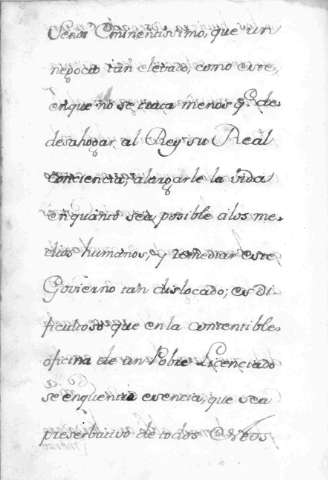 Señor Eminentissimo, que un
negocio tan elebado, como este,
en que no se trata menos q.e de
desahogar al Rey su Real
conciencia, alargarle la vida
en quanto sea posible à los me-
dios humanos, y remediar este
Govierno tan dislocado; es di-
ficultoso que en la contentible
oficina de un Pobre Licenciado
se enquentre esencia, que sea
preserbativo de todos estos